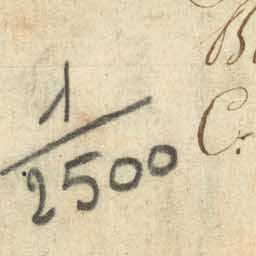 1/2500
C.